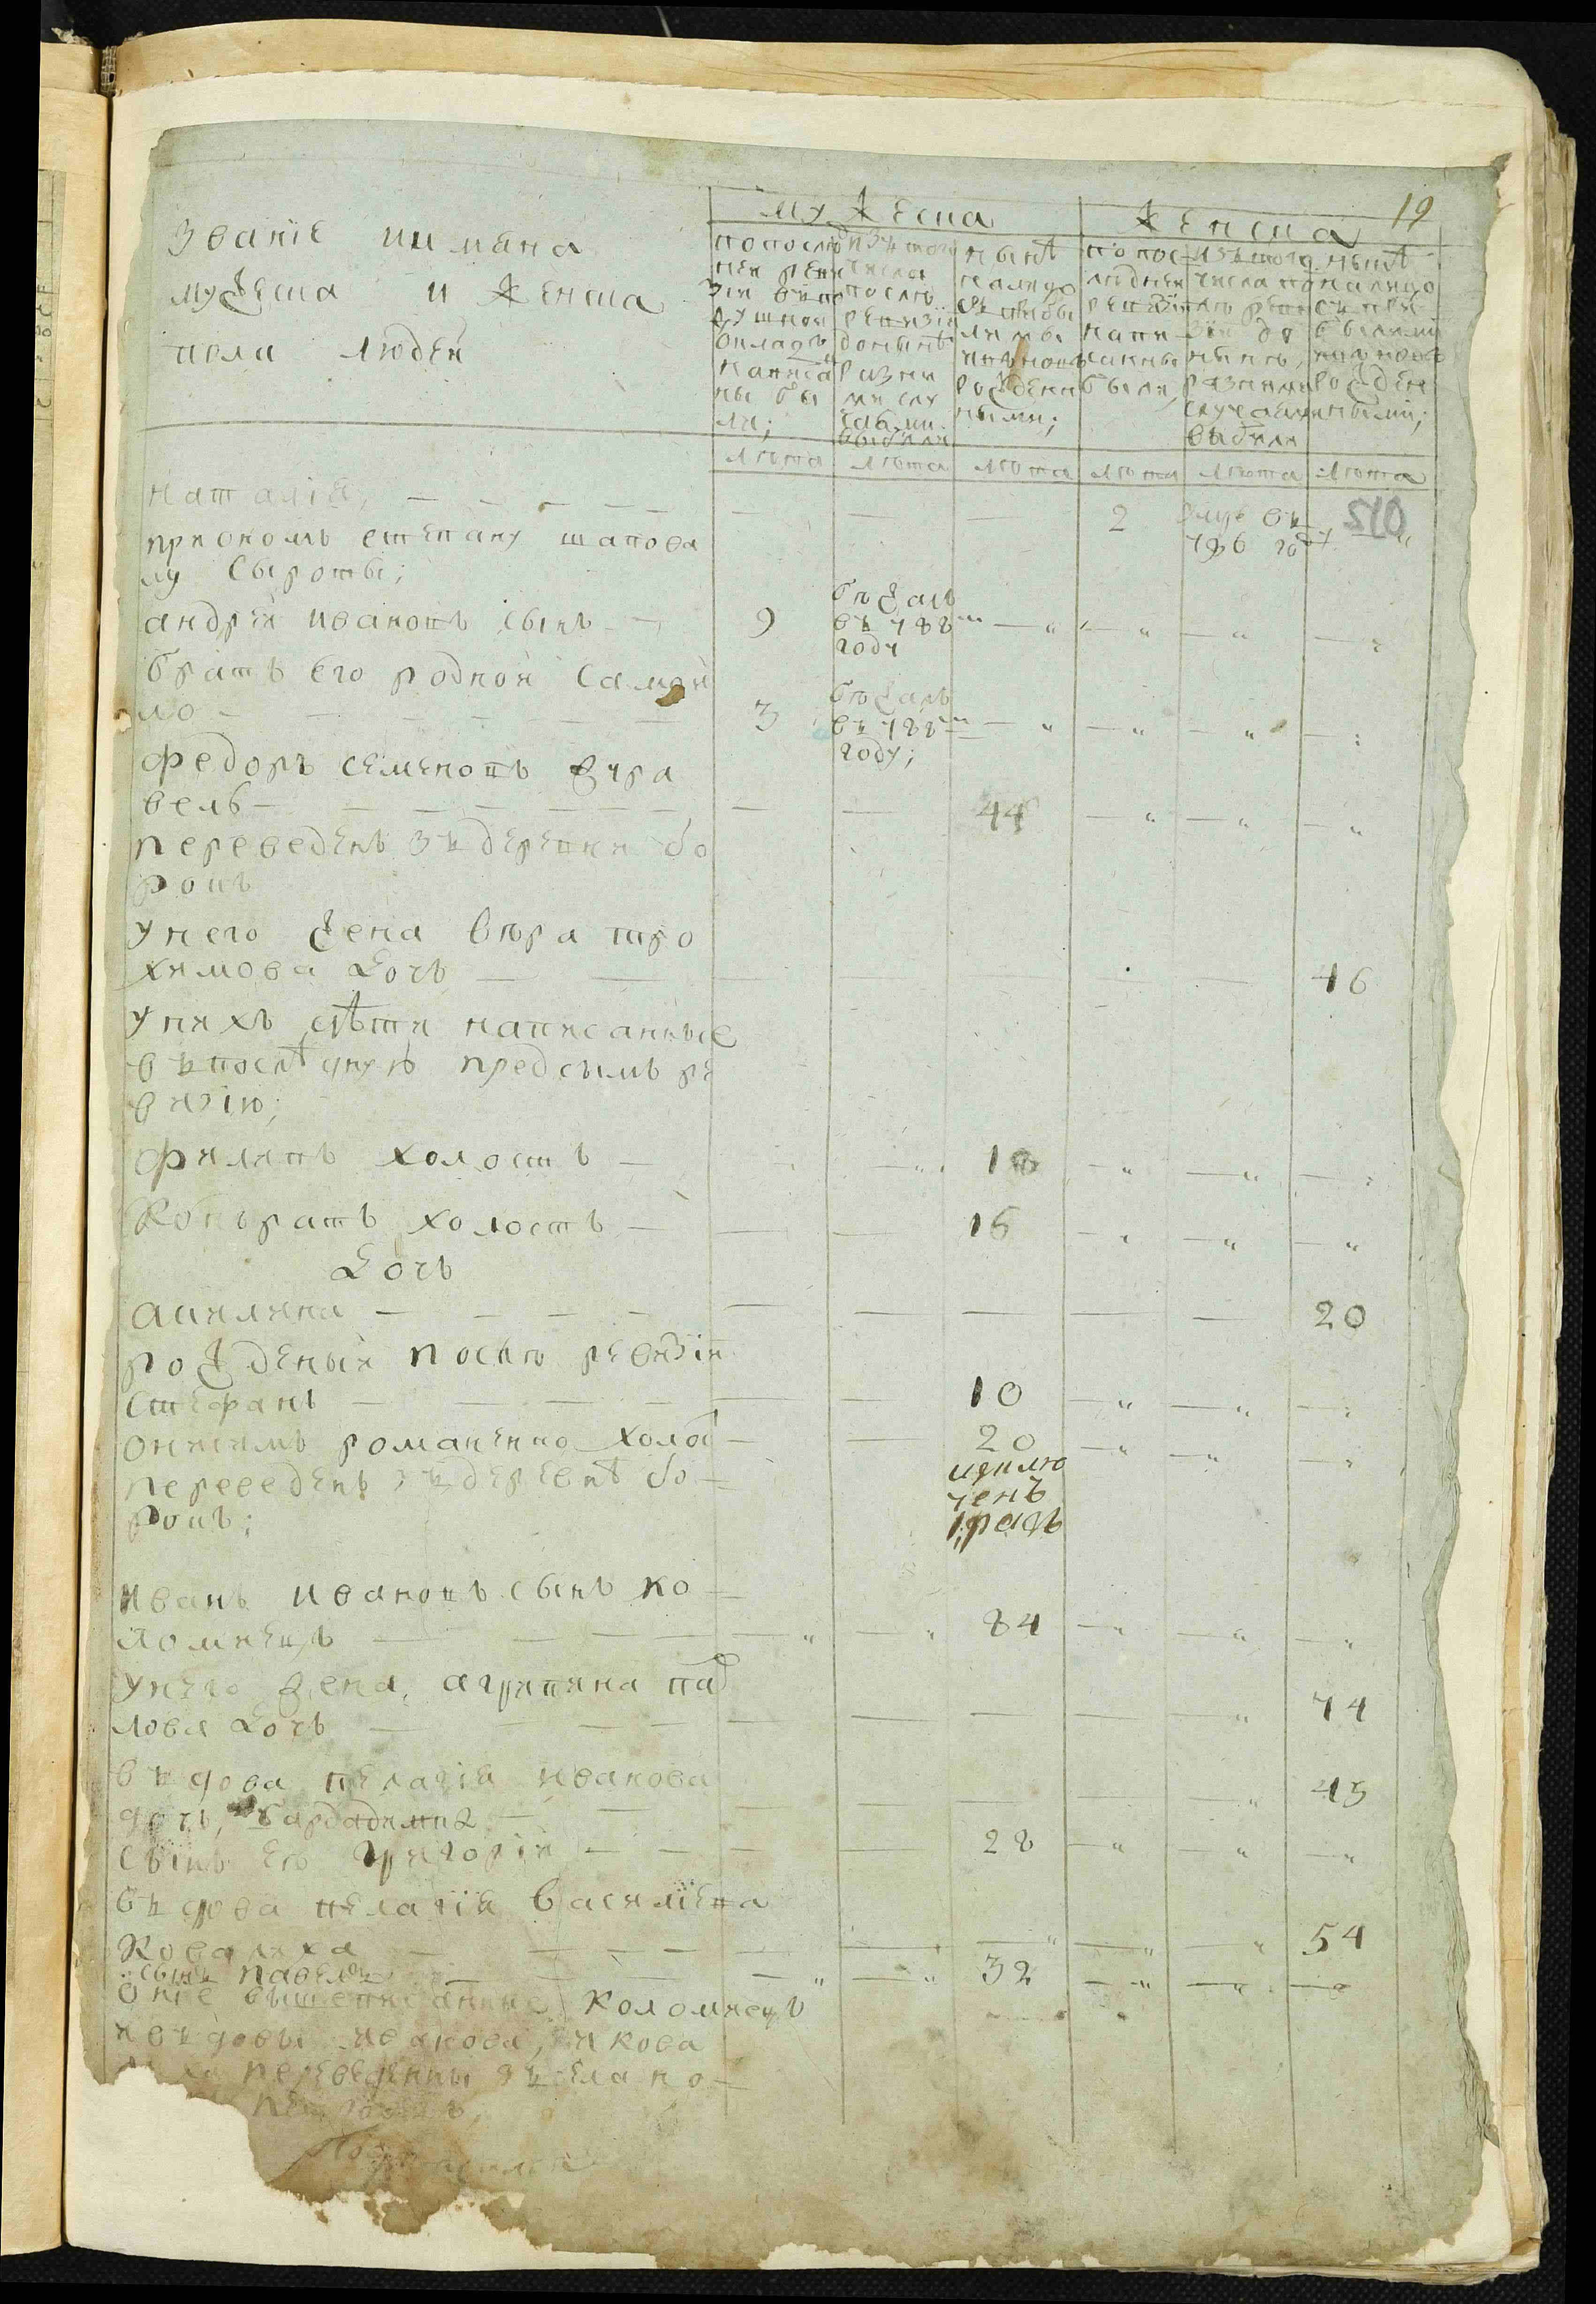 19
мужеска
женска
званіе и имена
мужеска и женска
пола людей
по послѣд
ней реви
зіи въ по
душной
окладъ
написа
ны бы
ли;
изъ того
числа
послѣ
ревизіи
донынѣ
разны
ми слу
чаями
выбыли
нынѣ
налицо
съ прибы
лимы
и вновь
рожден
ными;
по пос
лѣдней
ревизіи
напи
саны
были,
изъ того
числа по
слѣ реви
зіи до
нынѣ,
разными
случаями
выбыли
нынѣ
налицо
съ при
былими
и вновь
рожден
ными;
лѣта лѣта лѣта лѣта лѣта лѣта
наталія, 2 въ 210
796 го
при ономъ степану шапова
лу сыроты;
андрей ивановъ сынъ 9 бѣжалъ въ 788м году
братъ его родной самой
ло 3 бѣжалъ въ 788м году;
федоръ семеновъ жура
вель 44
переведенъ зъ деревки бо
рокъ
у него жена вѣра тро
химова дочь 46
у нихъ дѣти написанные
въ послѣдную предсымъ ре
визію;
филипъ холостъ
конъратъ холостъ 15
дочь
акилина 20
рожденый послѣ ревизіи
стефанъ 10
онисимъ романенко холос 20
переведенъ зъ деревнѣ бо
рокъ;
исклю
ченъ
1:разъ
иванъ ивановъ сынъ ко
ломиецъ 84
у него жена, агрипина пав
лова дочь 74
въдова пелагія иванова
дочь, бардадимка 45
сынъ ею григорій 28
въдова пелагія василіева
ковалиха 54
сынъ павелъ 32
оніе вышеписанние коломиецъ
и въдовы иванова, и кова
лиха переведенны зъ села но